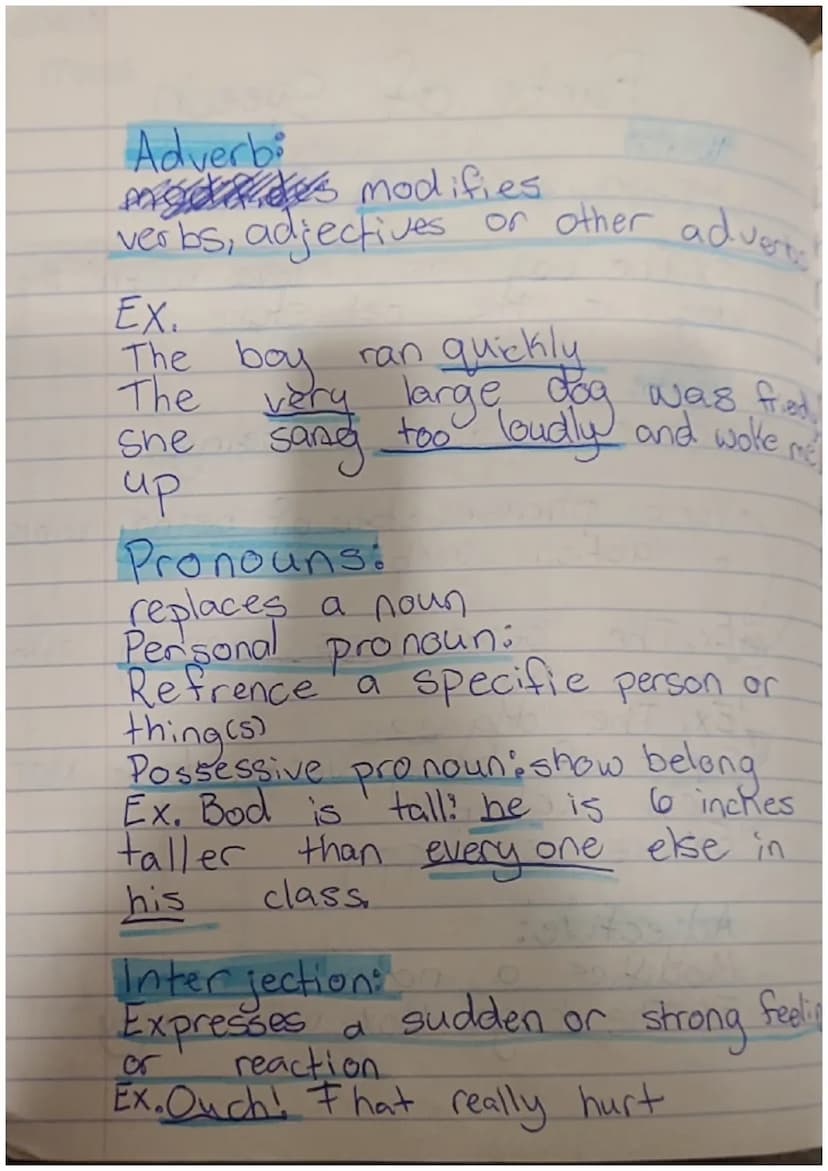 Adverb:
modifies
verbs, adjectives or other adverbs
Ex.
The boy ran quickly
The very large dog was
she sang too loudly and woke me
up
Pronouns:
replaces a noun
Personal pronoun:
Refrence a specific person or
thing(s)
Possessive pronoun: show belong
Ex. Bod is tall: he is 6 inches
taller than every one else in
his class.
Interjection:
Expresses a sudden or strong feelin
or reaction
Ex. Ouch! That really hurt